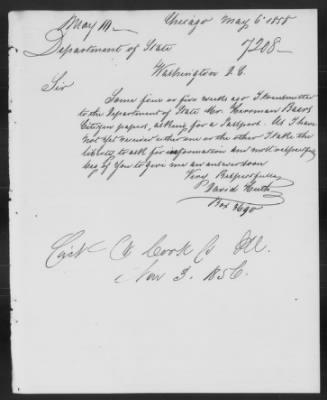 May 10
Chicago May 6th 1858
Department of State
7208
Washington D.C.
Sir
Some four or five weeks ago I transmitted
to the Department of State Mr. Herrman Baers
Citizen papers, asking for a Passport. As I have
not yet received either one or the other I take the
liberty to ask for information and most respectfully
beg of You to give me an answer soon
Very Respectfully
David
Box
Ct Cook Co Ill.
Nov 3. 1856.